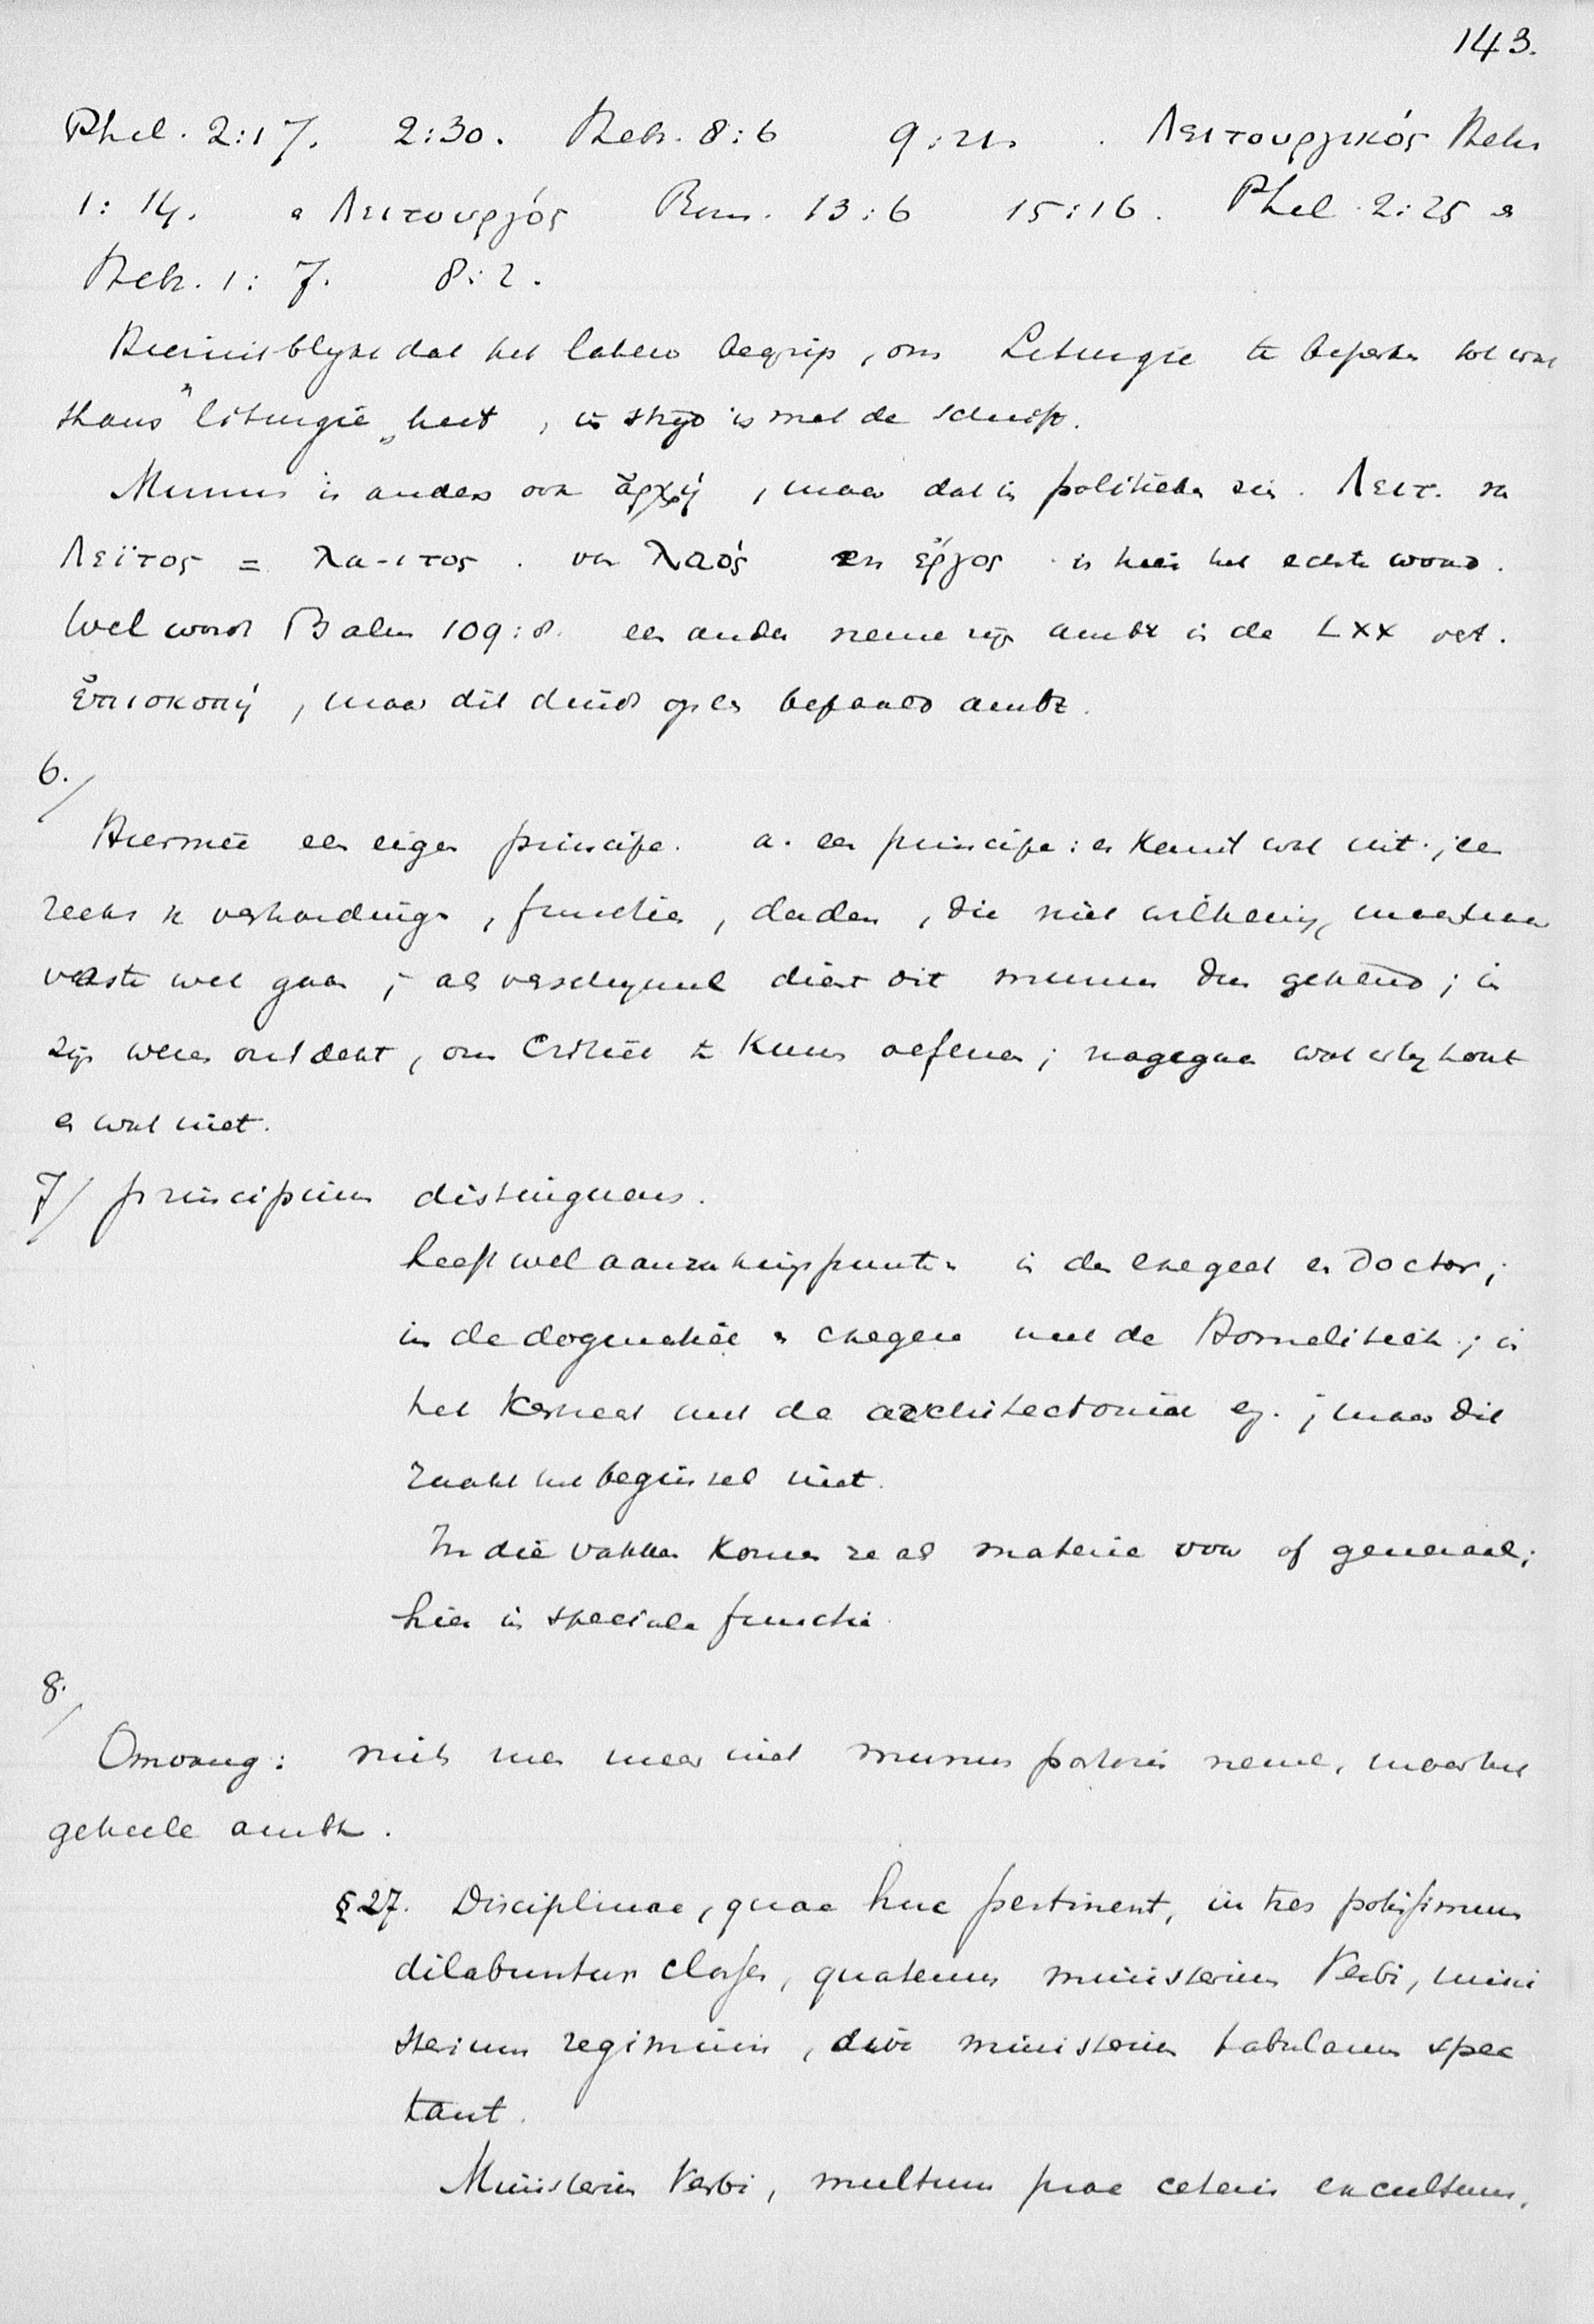 143.
Phil. 2:17. 2:30. Hebr. 8:6 9:21. Λειτουργικός Hebr
1:14. & Λειτουργός Rom. 13:6 15:16. Phil. 2:25 &
Hebr. 1:7. 8:2.
Hieruit blykt dat het latere begrip, om Liturgie te beperken tot wat
thans "liturgie" heet, in stryd is met de Schrift.
Munus is anders ook ἄρχή, maar dat in politieken zin. Λειτ. van
Λεϊτος = λα-ιτος. van λαός en ἔργος is hier het echte woord.
Wel wordt Psalm 109:8. een ander neme zijn ambt in de LXX vert.
ἔπισκοπή, maar dit duidt op een bepaald ambt.
6./
Hiermeê een eigen principe. a. een principe: er komt wat uit; een
reeks v. verhoudingen, functies, daden, die niet willekeurig, maar naar
vaste wet gaan; als verschynsel dient dit munus dus gekend; in
zijn wezen ontdekt, om Critiek te kunnen oefenen; nagegaan wat erby hoort
en wat niet.
7/ principium distinguens.
heeft wel aanrakingspunten in den exegeet en Doctor;
in de dogmatiek & exegese met de Homiletiek; in
het Kerkrecht met de architectoniek ez.; maar dit
raakt het beginsel niet.
In die vakken komen ze als materie voor of generaal;
hier in speciale functie.
8./
Omvang: mits men maar niet munus pastoris neme, maar het
geheele ambt.
§27. Disciplinae, quae huc pertinent, in tres potissimum
dilabuntur classes, quatenus ministerium Verbi, mini
sterium regiminis, sive ministerium tabularum spec
tant.
Ministerium Verbi, multum prae ceteris excultum,